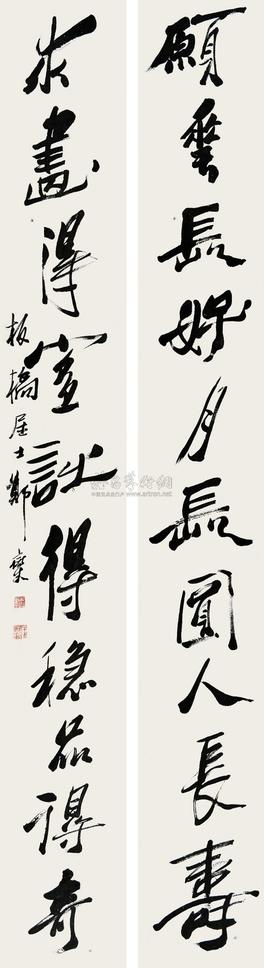 願長好月長圓人長壽
求畫得得穩得奇
板橋居士鄭燮
雅昌藝術網
www.artron.net